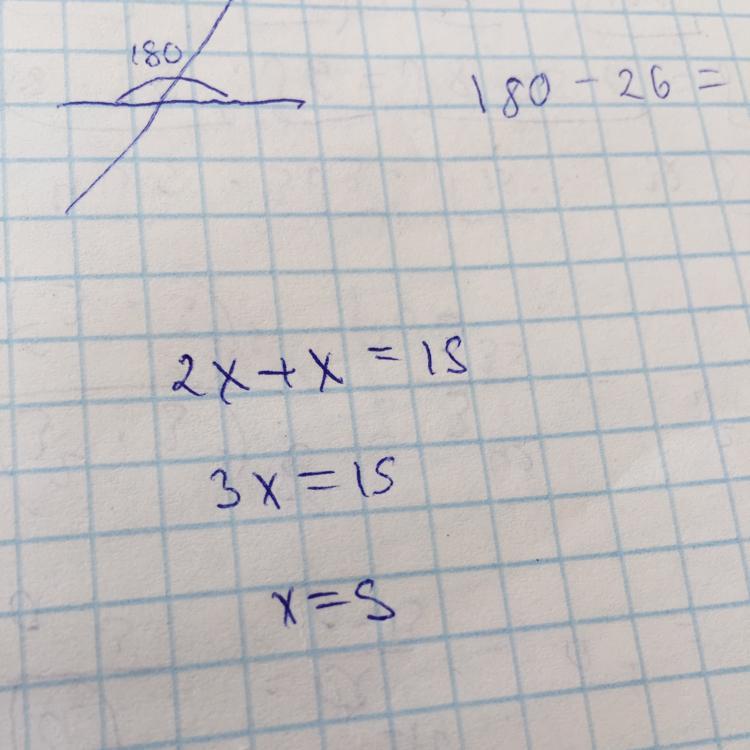 180
180 - 26 =
2x + x = 15
3x = 15
x = 5